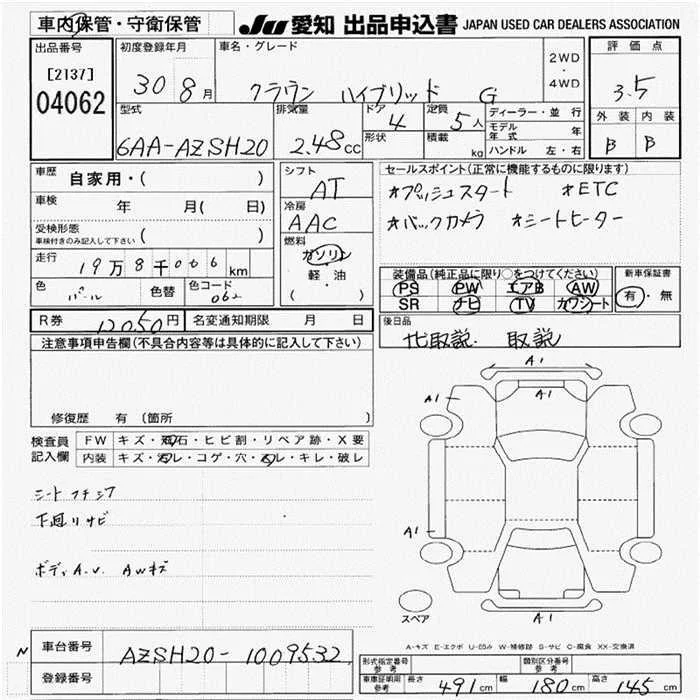 車内保管・守衛保管
JU 愛知 出品申込書 JAPAN USED CAR DEALERS ASSOCIATION
出品番号
[2137]
04062
初度登録年月
30 8月
車名・グレード
クラウン ハイブリッド G
2WD
・
4WD
評価点
3.5
外装 内装
B B
型式
6AA-AZSH20
排気量
2.48cc
ドア
4
形状
定員
5人
積載 kg
ディーラー・並行
モデル年式 年
ハンドル 左・右
車歴
自家用・( )
車検 年 月( 日)
受検形態
車検付きのみ記入して下さい ( )
走行
19万8千006km
色
パール
色替
色コード
062
シフト
AT
冷房
AAC
燃料
ガソリン
軽・油
( )
セールスポイント(正常に機能するものに限ります)
*プッシュスタート *ETC
*バックカメラ *シートヒーター
装備品(純正品に限り○をつけてください)
PS PW エアB AW
SR ナビ TV カワシート
新車保証書
有・無
R券 12050円
名変通知期限 月 日
後日品
ナビ取説. 取説
注意事項申告欄(不具合内容等は具体的に記入して下さい)
修復歴 有 (箇所 )
検査員記入欄
FW キズ・飛石・ヒビ割・リペア跡・X要
内装 キズ・汚レ・コゲ・穴・スレ・キレ・破レ
シートフチシワ
下廻リサビ
ボディA.U. AWキズ
A1
A1
A1
A1
A1
スペア
A-キズ E-エクボ U-凹み W-補修跡 S-サビ C-腐食 XX-交換済
N
車台番号
AZSH20-1009532
登録番号
形式指定番号
参考
類別区分番号
参考
車庫証明用
参考
長さ 491cm
幅 180cm
高さ 145cm